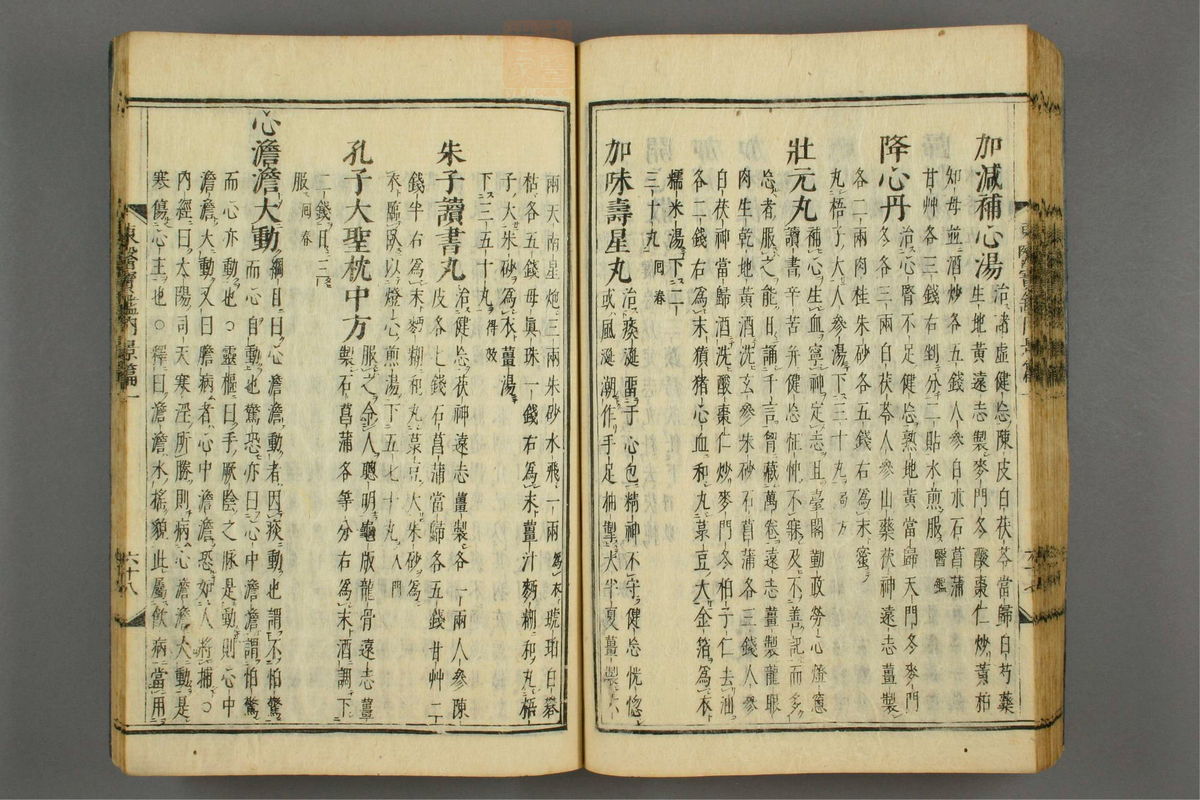 加減補心湯 治諸虛健忘陳皮白茯苓當歸白芍藥
生地黃遠志製麥門冬酸棗仁炒黃栢
知母並酒炒各五錢人參白朮石菖蒲
甘艸各三錢右剉分二貼水煎服 醫鑑
降心丹 治心腎不足健忘熟地黃當歸天門冬麥門
冬各三兩白茯苓人參山藥茯神遠志薑製
各二兩肉桂朱砂各五錢右爲末蜜
丸梧子大人參湯下三十丸 局方
壯元丸 補心生血寧神定志且臺閣勤政勞心燈窓
讀書辛苦并健忘怔忡不寐及不善記而多
忘者服之能日誦千言胷藏萬卷遠志薑製龍眼
肉生乾地黃酒洗玄參朱砂石菖蒲各三錢人參
白茯神當歸酒洗酸棗仁炒麥門冬柏子仁去油
各二錢右爲末獖猪心血和丸菉豆大金箔爲衣
糯米湯下二
三十丸 回春
加味壽星丸 治痰涎留于心包精神不守健忘恍惚
或風涎潮作手足抽掣大半夏薑製六
兩天南星炮三兩朱砂水飛一兩爲衣琥珀白礬
枯各五錢母眞珠一錢右爲末薑汁麪糊和丸梧
子大朱砂爲衣薑湯
下三五十丸 得效
朱子讀書丸 治健忘茯神遠志薑製各一兩人參陳
皮各七錢石菖蒲當歸各五錢甘艸二
錢半右爲末麪糊和丸菉豆大朱砂爲
衣臨臥以燈心煎湯下五七十丸 入門
孔子大聖枕中方 服之令人聰明龜版龍骨遠志薑
製石菖蒲各等分右爲末酒調下
一錢日二三
服 回春
心澹澹大動 綱目曰心澹澹動者因痰動也謂不怕驚
而心自動也驚恐亦曰心中澹澹謂怕驚
而心亦動也○靈樞曰手厥陰之脉是動則心中
澹澹大動又曰膽病者心中澹澹恐如人將捕○
內經曰太陽司天寒淫所勝則病心澹澹大動是
寒傷心主也○釋曰澹澹水搖貌此屬飮病當用
東醫寶鑑內景篇一
六十八